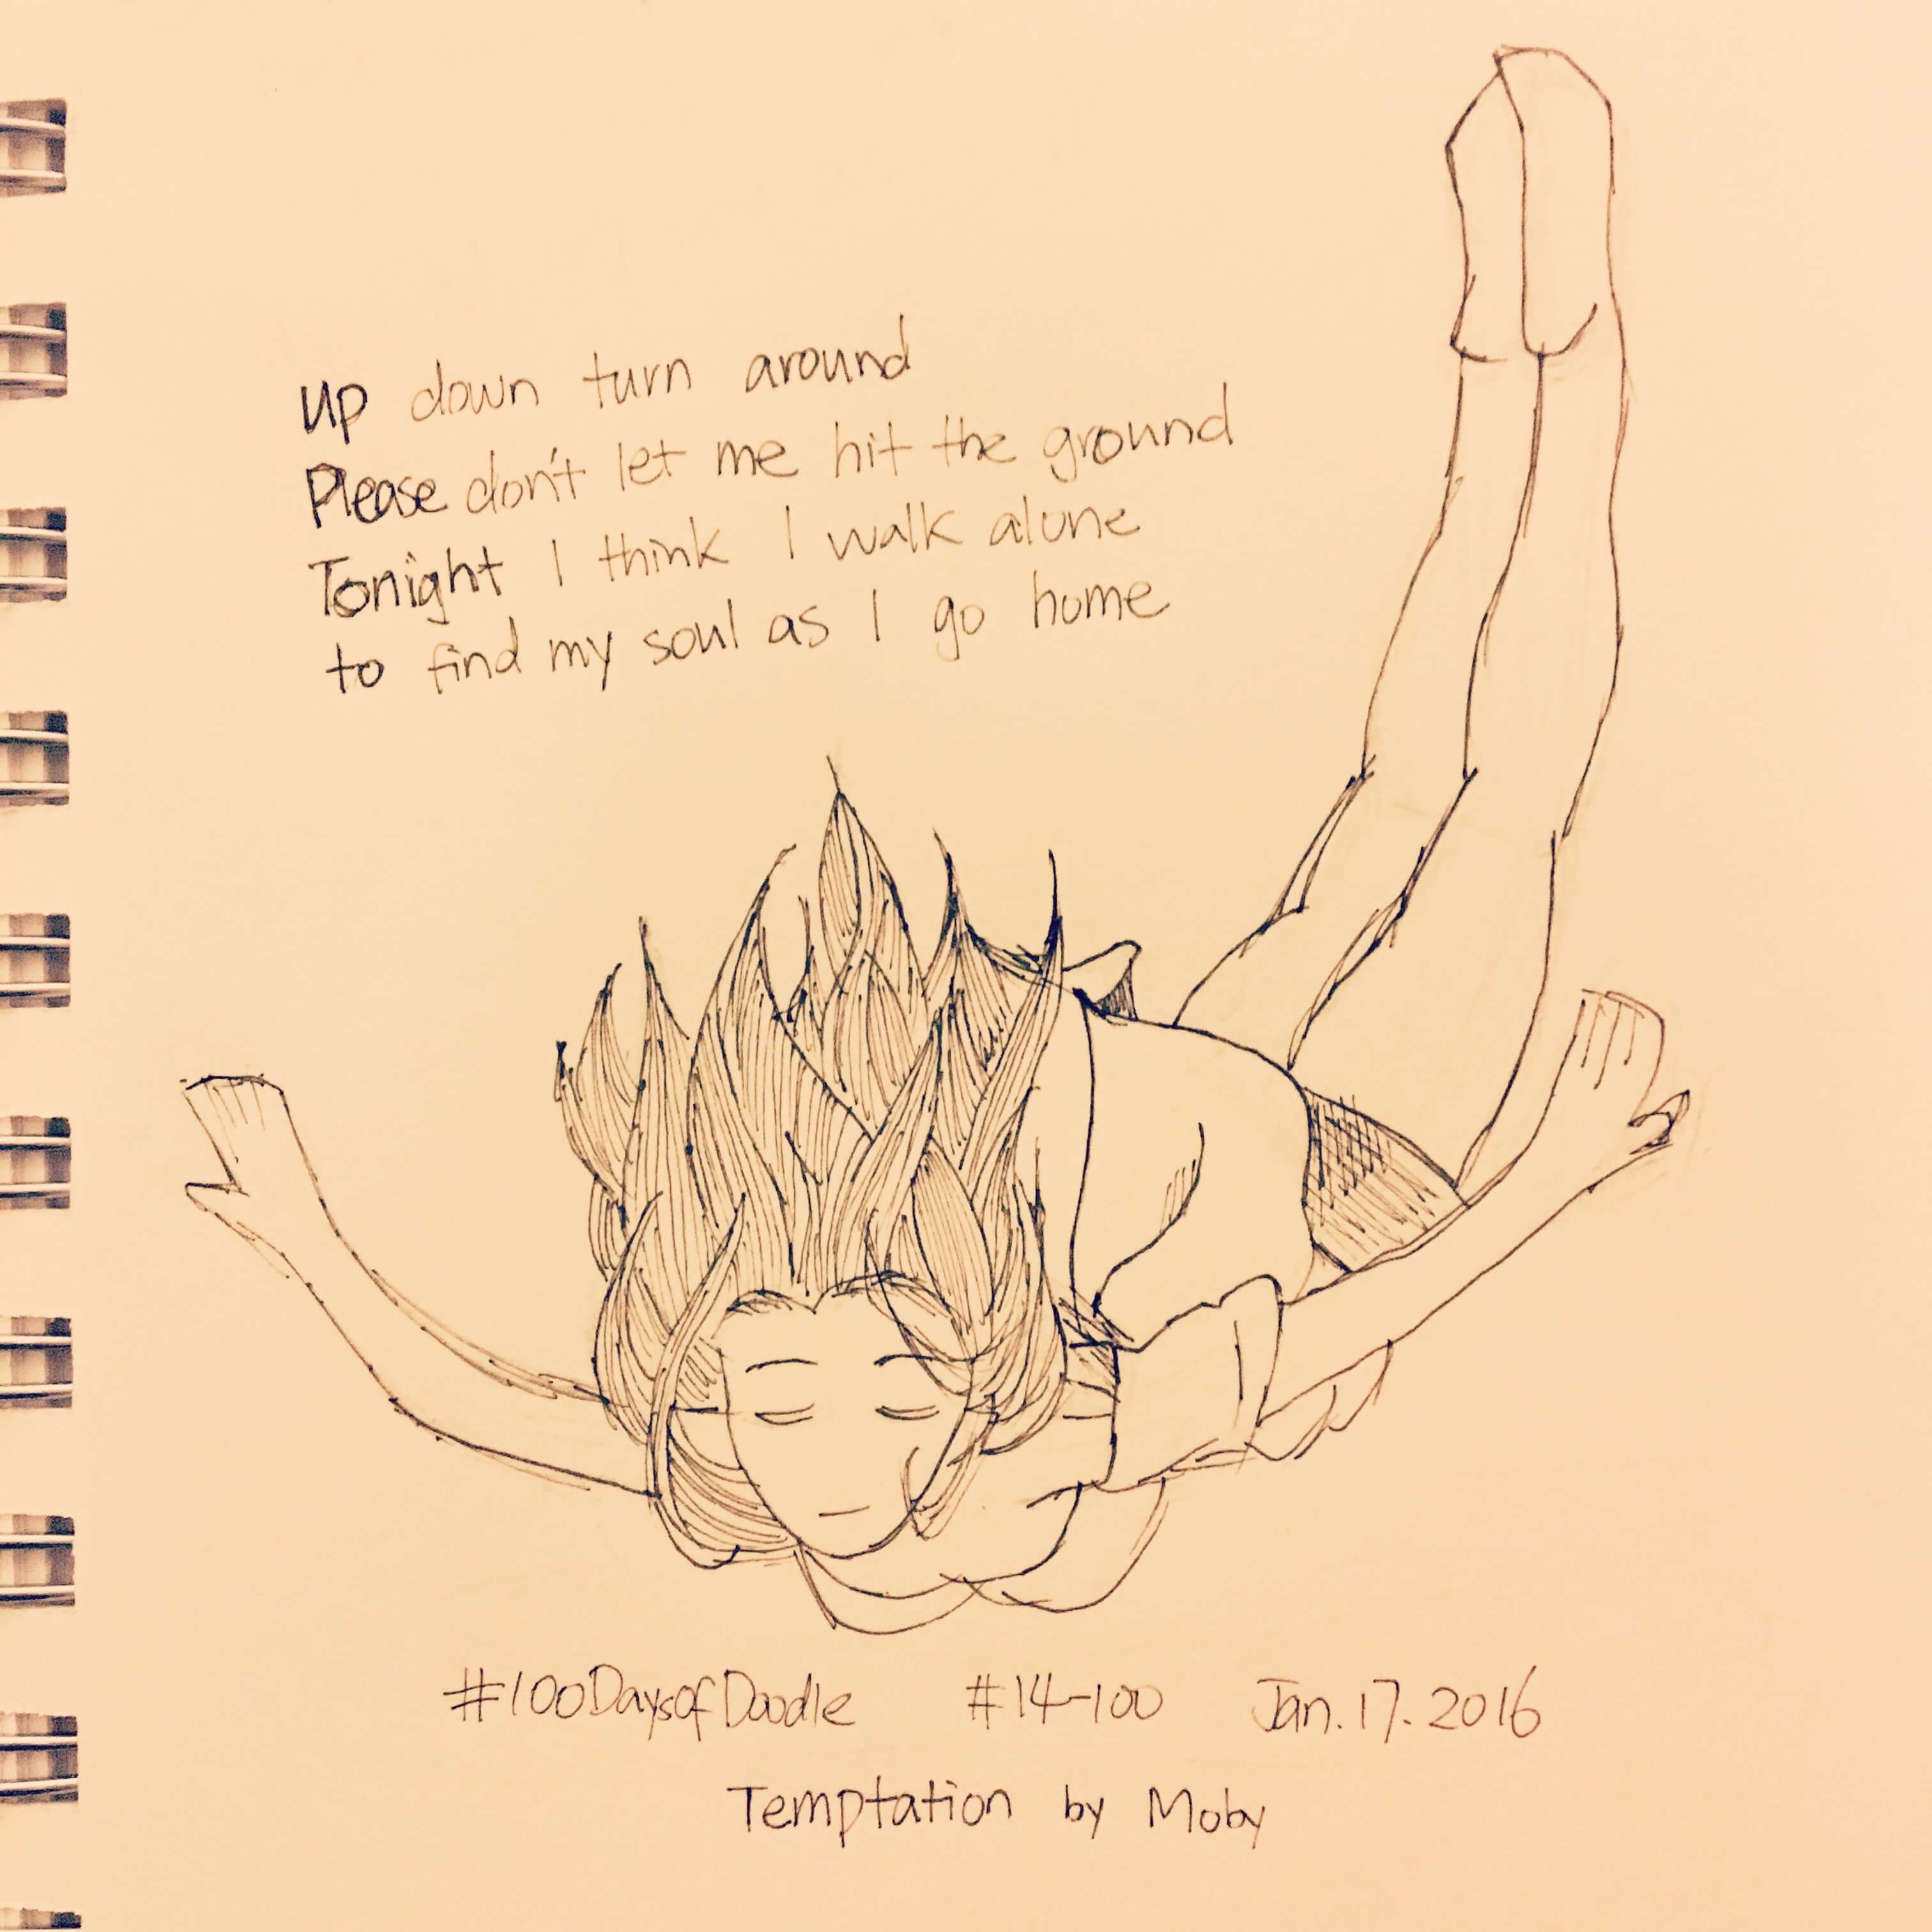 up down turn around
Please don't let me hit the ground
Tonight I think I walk alone
to find my soul as I go home
#100DaysofDoodle #14-100 Jan.17.2016
Temptation by Moby